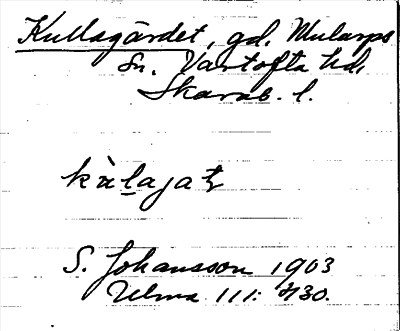 Kullagärdet, gd. Mularps
sn. Vartofta hd.
Skarab. l.
kùlajat
S. Johansson 1903
Ulma 111: 430.